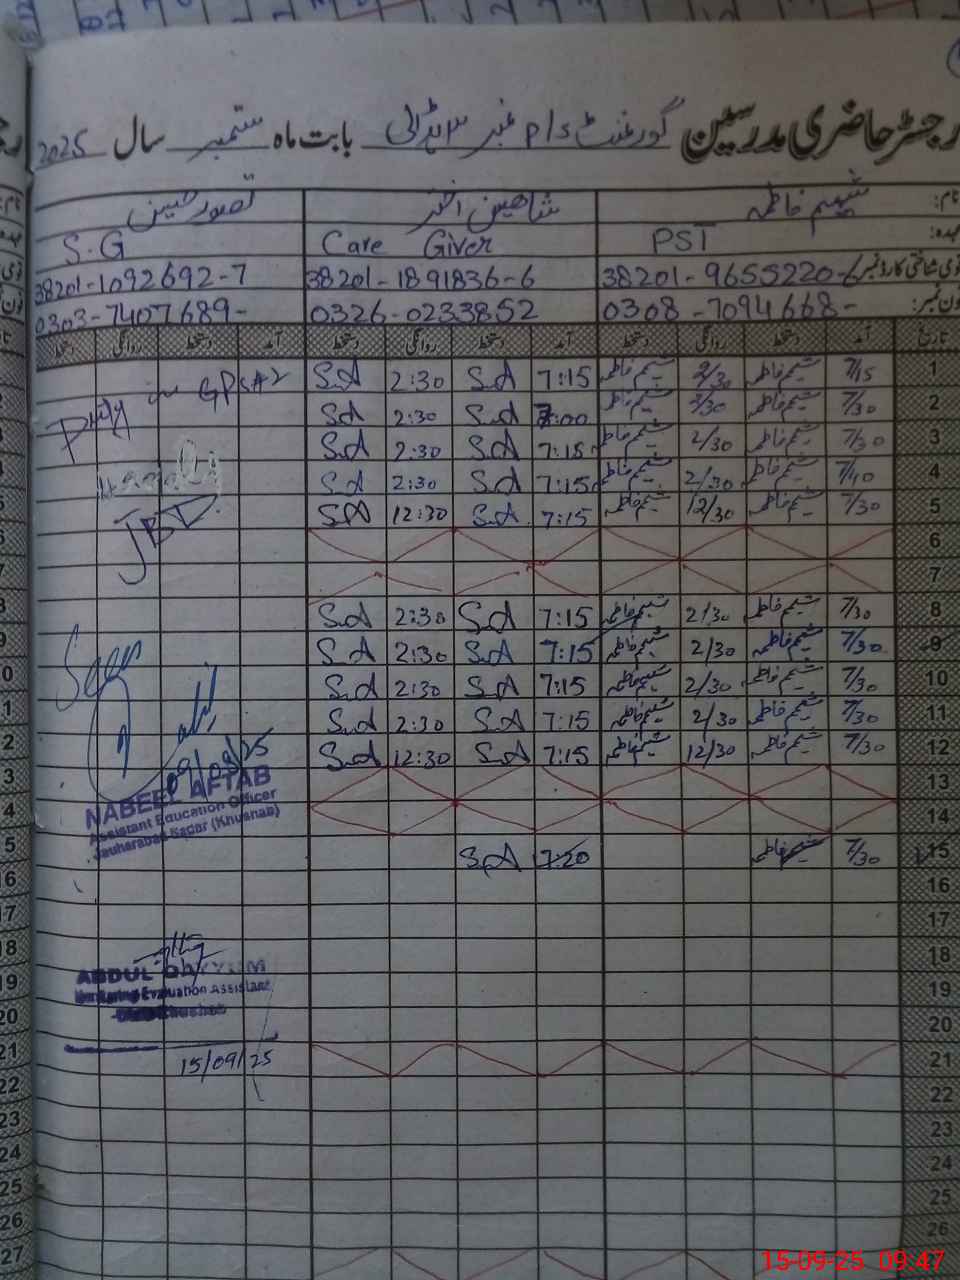 رجسٹر حاضری مدرسین گورنمنٹ p/s نمبر ۳ بابت ماہ ستمبر سال 2025
نام: شمیم فاطمہ شاہین اختر تصور حسین
عہدہ: PST Care Giver S.G
قومی شناختی کارڈ نمبر 38201-9655220-6 38201-1891836-6 38201-1092692-7
فون نمبر: 0308-7094668- 0326-0233852 0303-7407689-
تاریخ آمد دستخط روانگی دستخط آمد دستخط روانگی دستخط آمد دستخط روانگی دستخط
1 7/15 شمیم فاطمہ 2/30 شمیم فاطمہ 7:15 S.A 2:30 S.A
GPS#2
2 7/30 شمیم فاطمہ 2/30 شمیم فاطمہ 7:00 S.A 2:30 S.A
3 7/30 شمیم فاطمہ 2/30 شمیم فاطمہ 7:15 S.A 2:30 S.A
4 7/40 شمیم فاطمہ 2/30 شمیم فاطمہ 7:15 S.A 2:30 S.A
5 7/30 شمیم فاطمہ 12/30 شمیم فاطمہ 7:15 S.A 12:30 S.A
JBT
6
7
8 7/30 شمیم فاطمہ 2/30 شمیم فاطمہ 7:15 S.A 2:30 S.A
9 7/30 شمیم فاطمہ 2/30 شمیم فاطمہ 7:15 S.A 2:30 S.A
Seen
10 7/30 شمیم فاطمہ 2/30 شمیم فاطمہ 7:15 S.A 2:30 S.A
11 7/30 شمیم فاطمہ 2/30 شمیم فاطمہ 7:15 S.A 2:30 S.A
12 7/30 شمیم فاطمہ 12/30 شمیم فاطمہ 7:15 S.A 12:30 S.A
09/09/25
NABEEL AFTAB
Assistant Education Officer
Jauharabad Saddar (Khushab)
13
14
15 7/30 شمیم فاطمہ 7:20 S.A
16
17
18
ABDUL QAYYUM
Monitoring Evaluation Assistant
Khushab
19
20
21
15/09/25
22
23
24
25
26
27
15-09-25 09:47